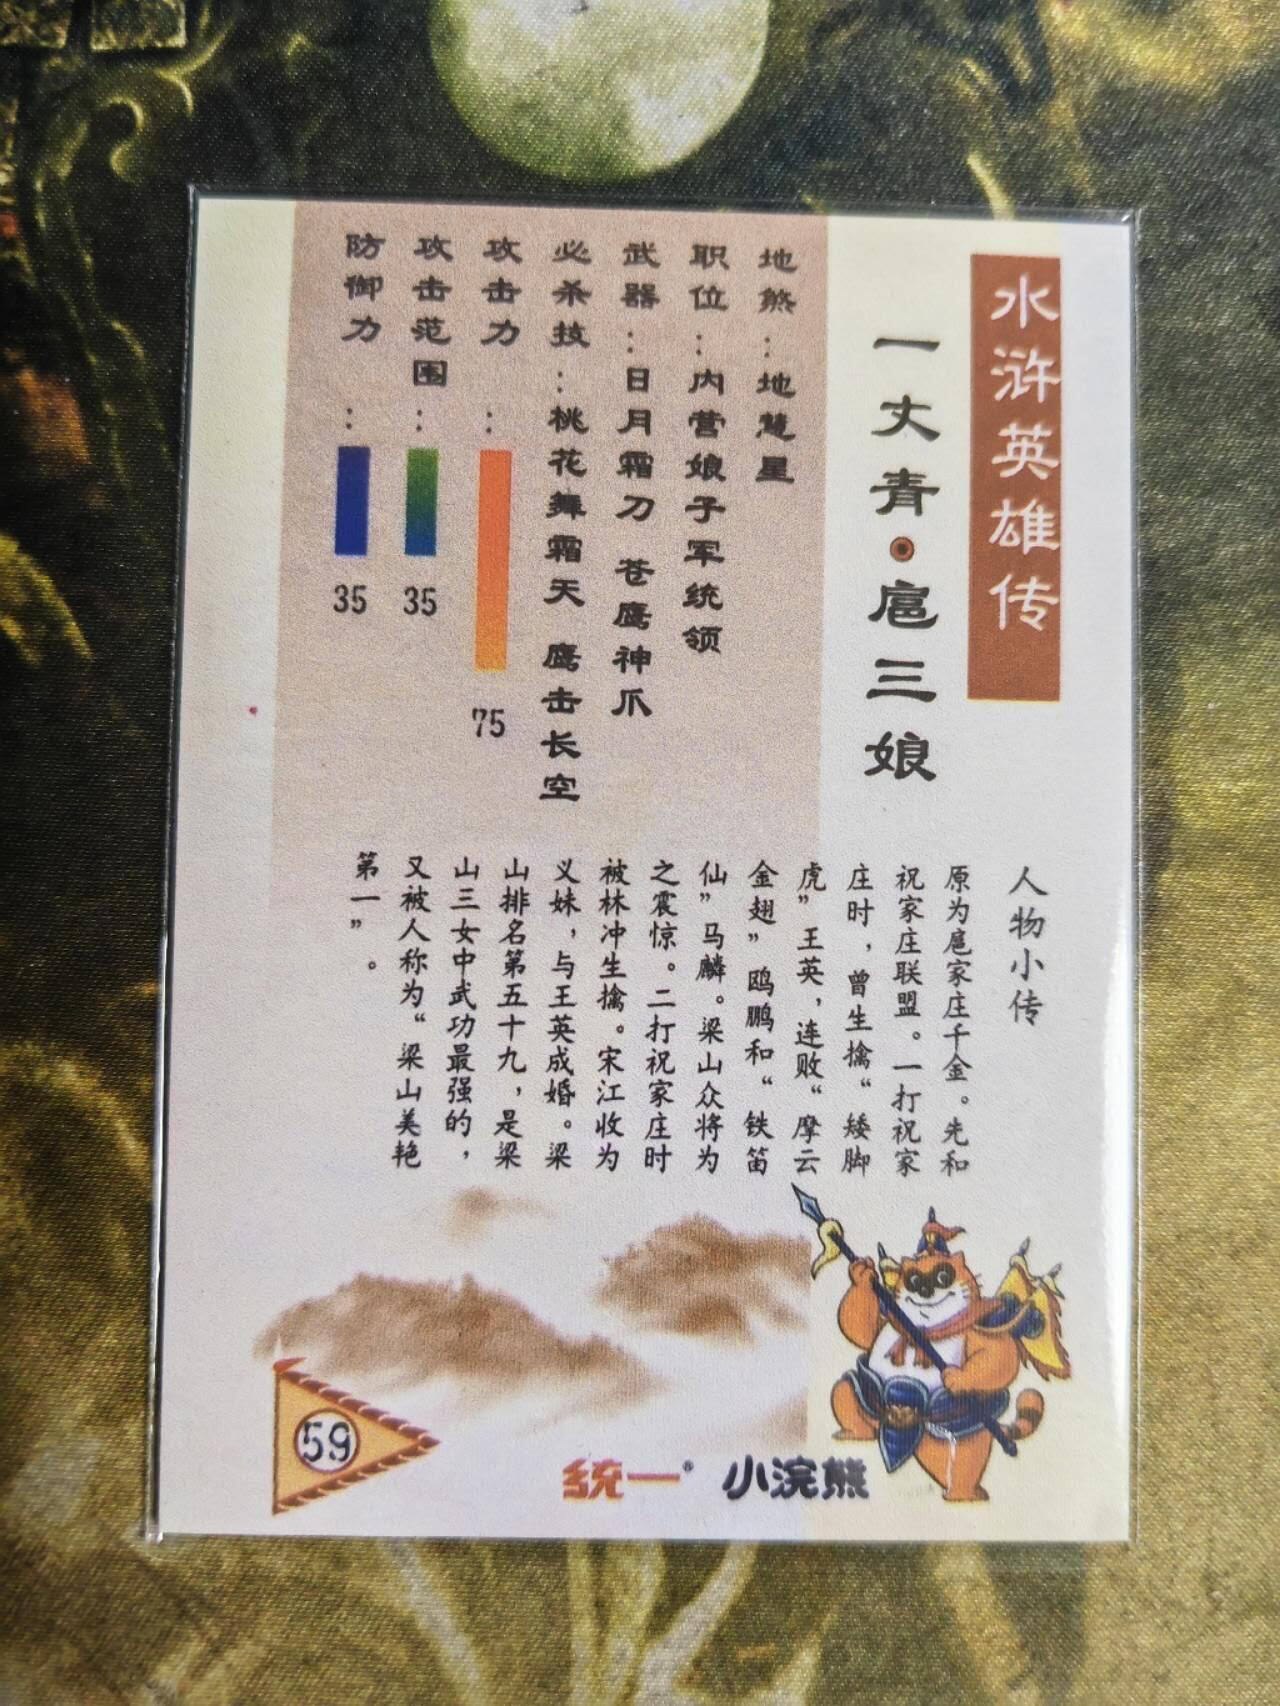 水浒英雄传
一丈青·扈三娘
地煞：地慧星
职位：内营娘子军统领
武器：日月霜刀 苍鹰神爪
必杀技：桃花舞霜天 鹰击长空
攻击力：
75
攻击范围：
35
防御力：
35
人物小传
原为扈家庄千金。先和
祝家庄联盟。一打祝家
庄时，曾生擒“矮脚
虎”王英，连败“摩云
金翅”鸥鹏和“铁笛
仙”马麟。梁山众将为
之震惊。二打祝家庄时
被林冲生擒。宋江收为
义妹，与王英成婚。梁
山排名第五十九，是梁
山三女中武功最强的，
又被人称为“梁山美艳
第一”。
59
统一® 小浣熊